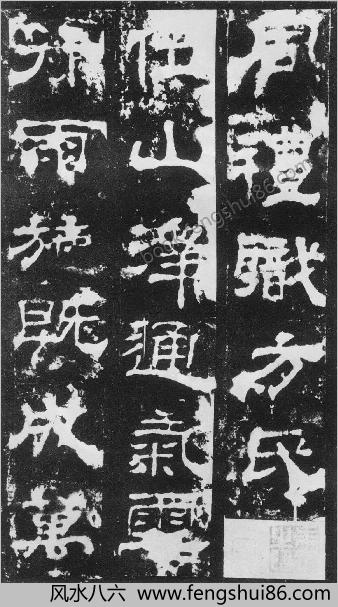 周禮職方氏
位山澤通氣雲
行雨施既成萬
book.fengshui86.com
风水八六 www.fengshui86.com